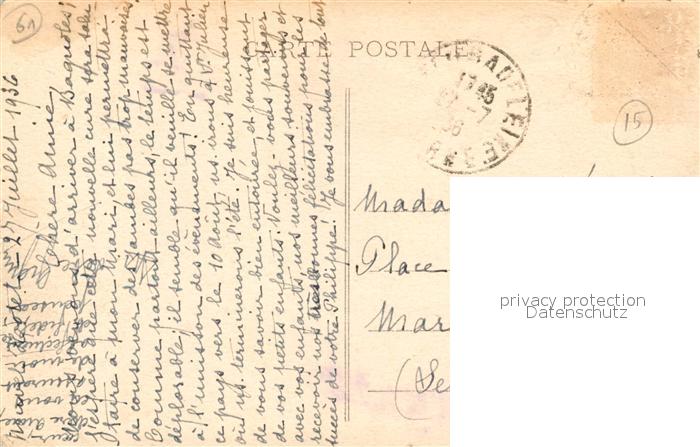 CARTE POSTALE
51
15
27 Juillet 1936
Chère Amie,
Nous venons d'arriver à Bagnoles;
j'espère que cette nouvelle cure sera salu-
taire à mon mari et lui permettra
de conserver des jambes pas trop mauvaises.
Comme partout ailleurs, le temps est
déplorable, il semble qu'il veuille se mettre
à l'unisson des évènements! En quittant
ce pays vers le 10 Août, ns. irons à St. Julien
où ns. terminerons l'été. Je suis heureuse
de vous savoir bien entourée, et jouissant
de vos petits enfants. Voulez-vous partager
avec vos enfants, nos meilleurs souvenirs et
recevoir nos très bonnes félicitations pour les
succès de votre Philippe! Je vous embrasse de tout
Mada
Place
Mar
(Se
privacy protection
Datenschutz